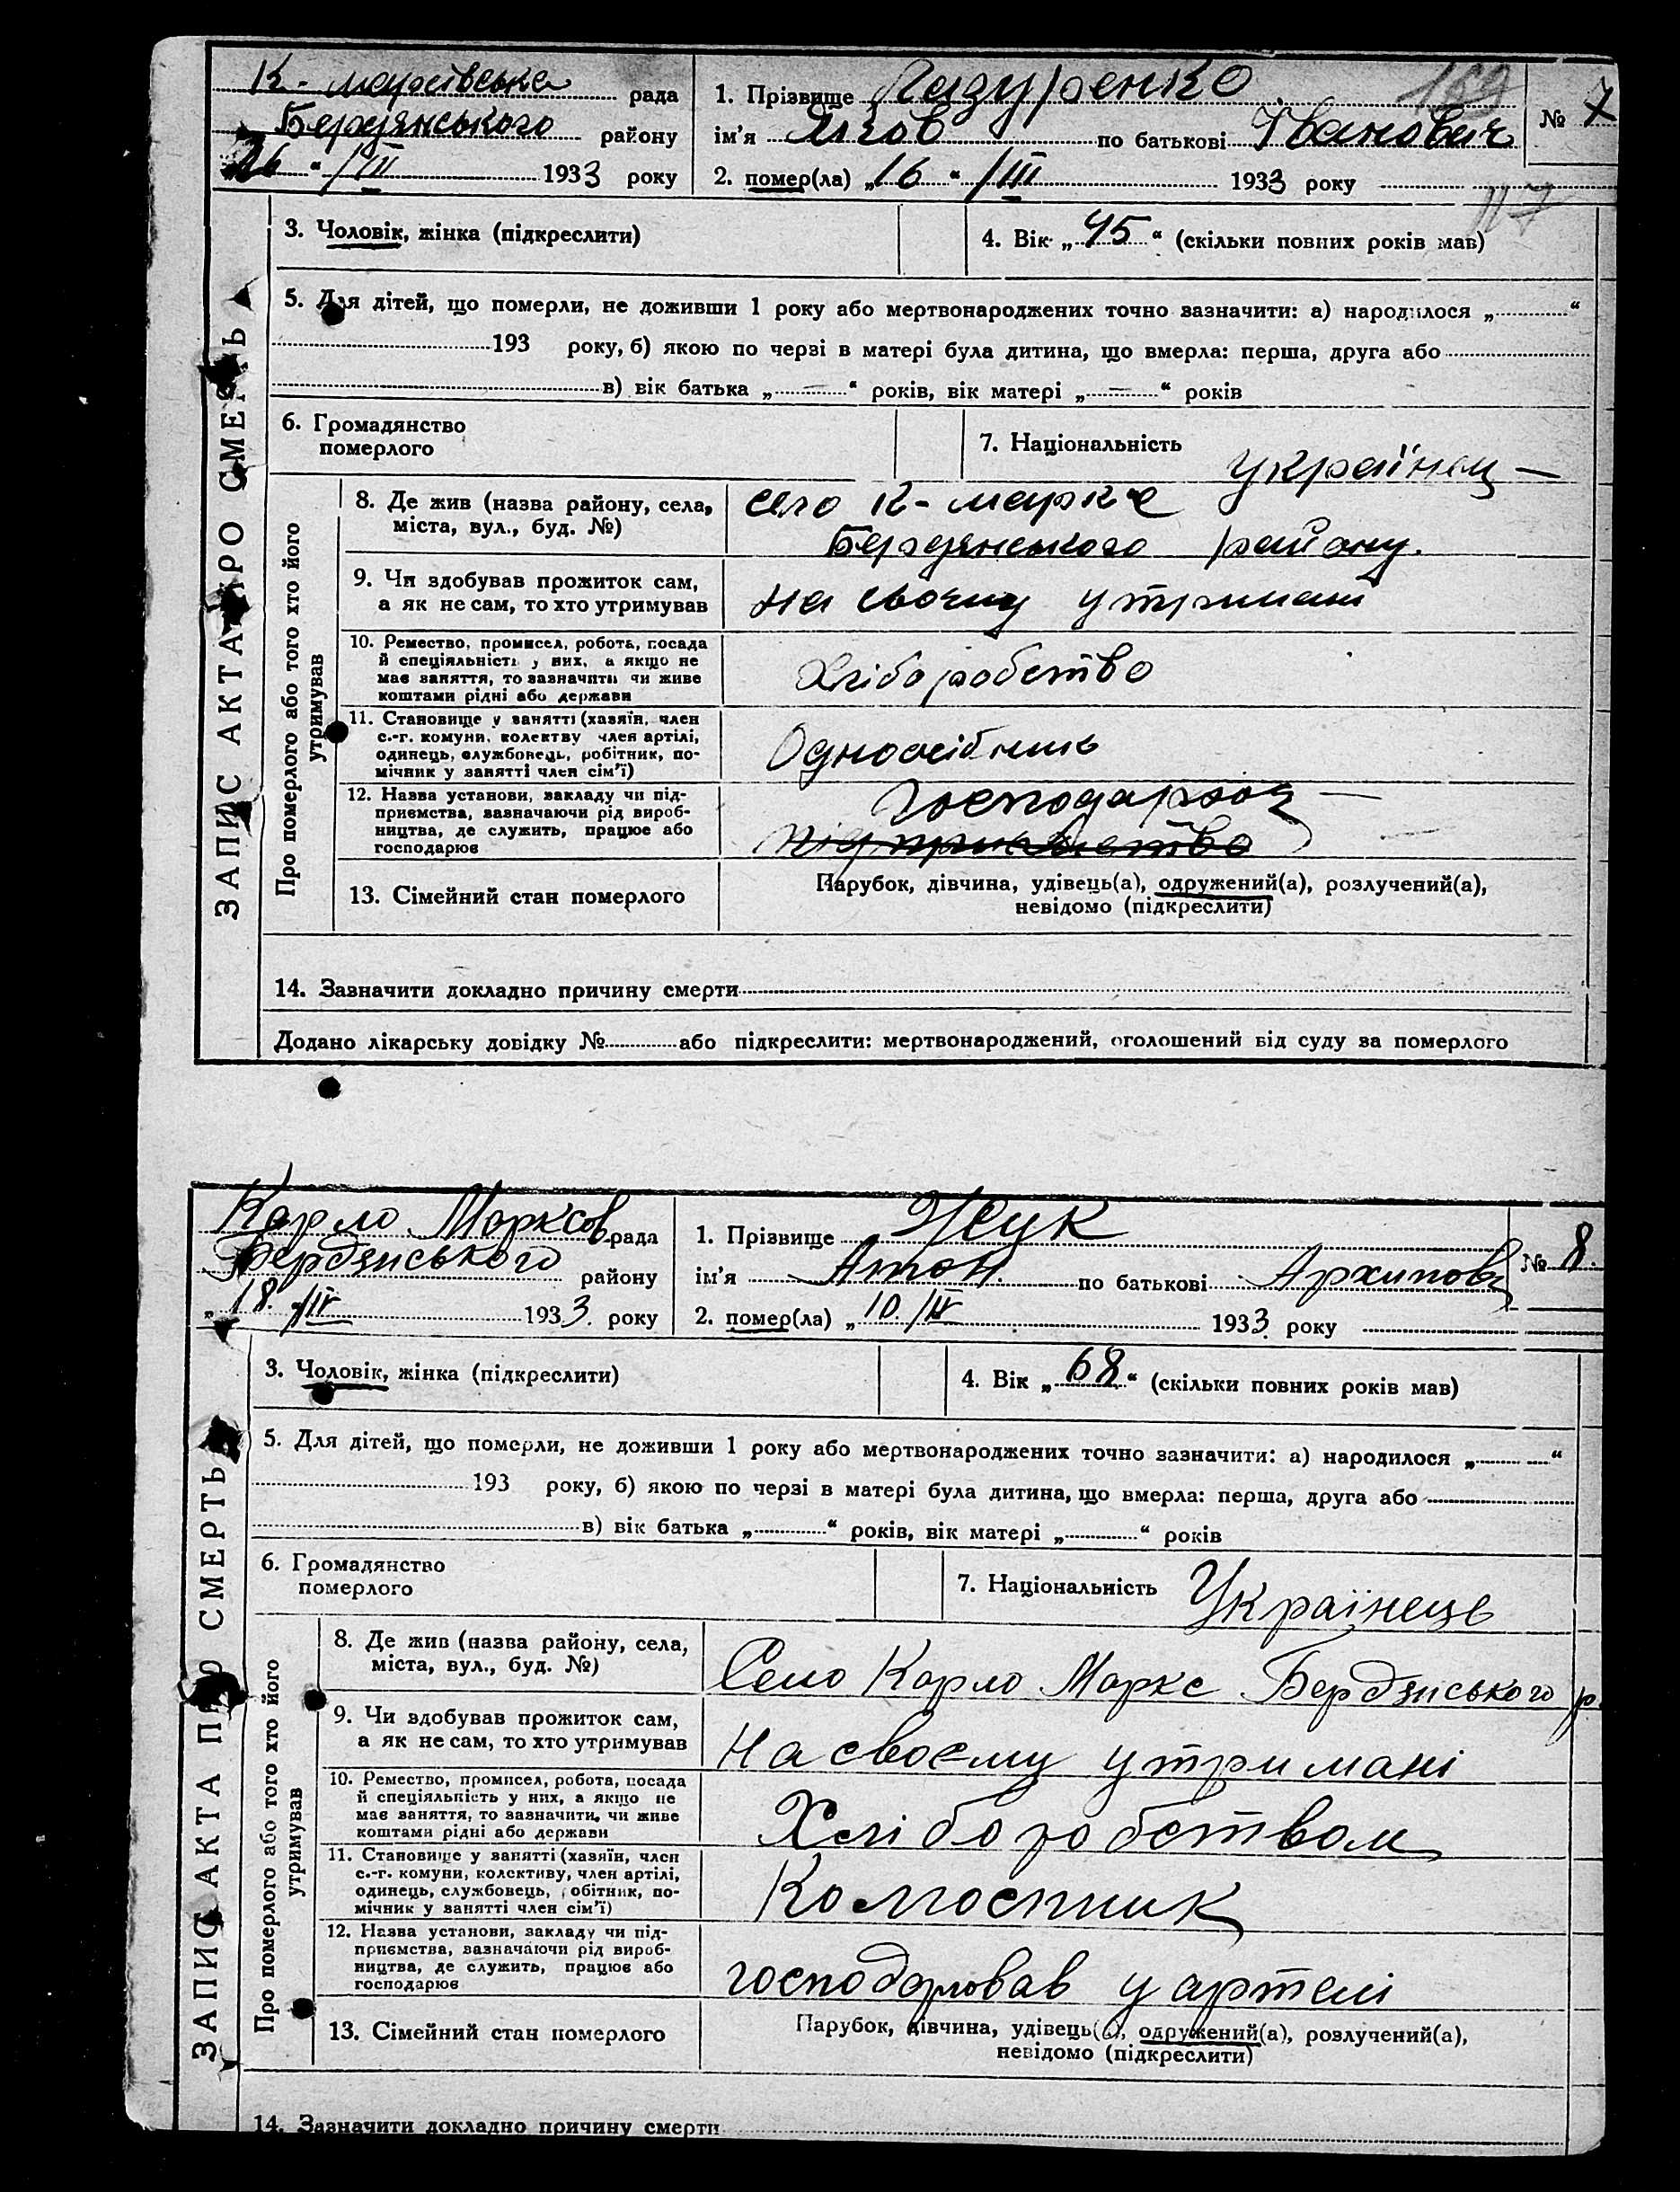 К-марксівська рада
Бердянського району
26 " /III 1933 року
1. Прізвище Лазуренко 169
ім'я Яков по батькові Іванович
2. помер(ла) „16 “ /III 1933 року
№ 7
117
3. Чоловік, жінка (підкреслити)
4. Вік „ 45 “ (скільки повних років мав)
5. Для дітей, що померли, не доживши 1 року або мертвонароджених точно зазначити: а) народилося „ “
193 року, б) якою по черзі в матері була дитина, що вмерла: перша, друга або
в) вік батька „ — “ років, вік матері „ — “ років
6. Громадянство
померлого
7. Національність українец —
ЗАПИС АКТА ПРО СМЕРТЬ
Про померлого або того хто його
утримував
8. Де жив (назва району, села,
міста, вул., буд. №)
село К-маркс
Бердянського району.
9. Чи здобував прожиток сам,
а як не сам, то хто утримував
на своєму утримані
10. Ремество, промисел, робота, посада
й спеціяльність у них, а якщо не
має заняття, то зазначити чи живе
коштами рідні або держави
Хліборобство
11. Становище у занятті (хазяїн, член
с.-г. комуни, колективу член артілі,
одинець, службовець, робітник, по-
мічник у занятті член сім'ї)
Одноосібник
12. Назва установи, закладу чи під-
приємства, зазначаючи рід вироб-
ництва, де служить, працює або
господарює
13. Сімейний стан померлого
Парубок, дівчина, удівець(а), одружений(а), розлучений(а),
невідомо (підкреслити)
14. Зазначити докладно причину смерти
Додано лікарську довідку № або підкреслити: мертвонароджений, оголошений від суду за померлого
Карло Марксов рада
Бердянського району
„ 18. /IV 1933. року
1. Прізвище Жук
ім'я Антон по батькові Архипов
2. помер(ла) „ 10. /IV 1933. року
№ 8.
3. Чоловік, жінка (підкреслити)
4. Вік „ 68 “ (скільки повних років мав)
5. Для дітей, що померли, не доживши 1 року або мертвонароджених точно зазначити: а) народилося „ “
193 року, б) якою по черзі в матері була дитина, що вмерла: перша, друга або
в) вік батька „ “ років, вік матері „ “ років
6. Громадянство
померлого
7. Національність Українець
ЗАПИС АКТА ПРО СМЕРТЬ
Про померлого або того хто його
утримував
8. Де жив (назва району, села,
міста, вул., буд. №)
Село Карло Маркс Бердянського р.
9. Чи здобував прожиток сам,
а як не сам, то хто утримував
На своєму утримані
10. Ремество, промисел, робота, посада
й спеціяльність у них, а якщо не
має заняття, то зазначити, чи живе
коштами рідні або держави
Хліборобством
11. Становище у занятті (хазяїн, член
с.-г. комуни, колективу, член артілі,
одинець, службовець, робітник, по-
мічник у занятті член сім'ї)
Колгоспник
12. Назва установи, закладу чи під-
приємства, зазначаючи рід вироб-
ництва, де служить, працює або
господарює
господарював у артелі
13. Сімейний стан померлого
Парубок, дівчина, удівець(а), одружений(а), розлучений(а),
невідомо (підкреслити)
14. Зазначити докладно причину смерти